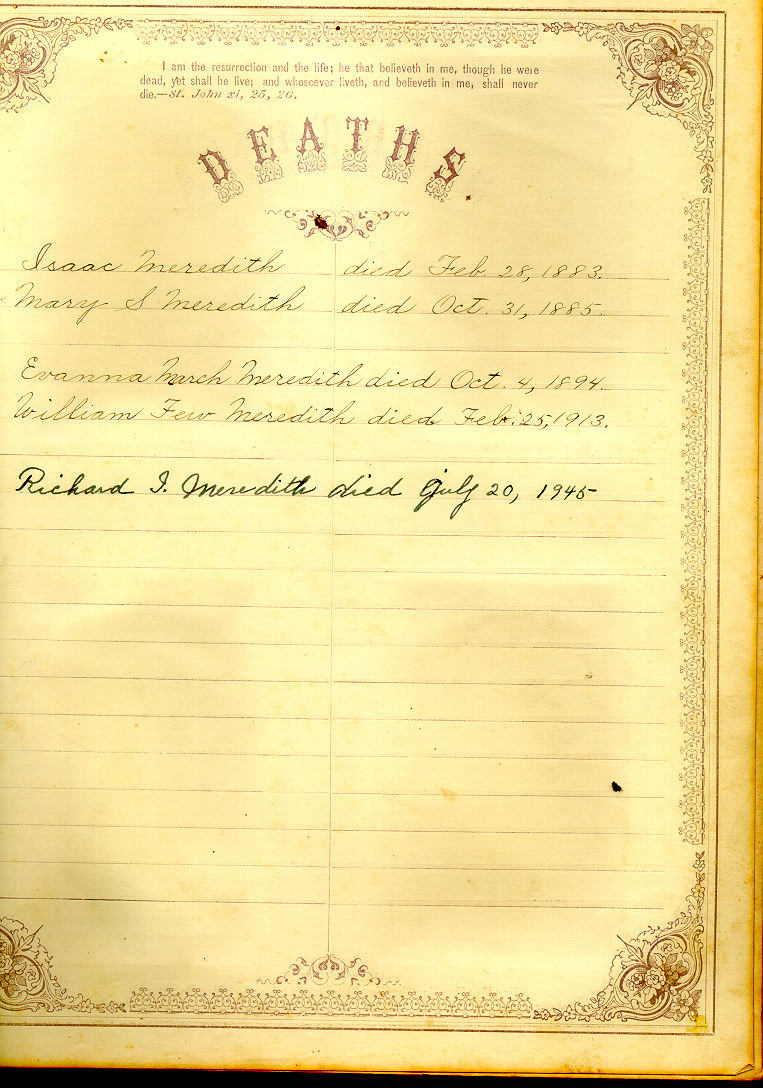 I am the resurrection and the life; he that believeth in me, though he were
dead, yet shall he live; and whosoever liveth, and believeth in me, shall never
die.—St. John xi, 25, 26.
DEATHS.
Isaac Meredith died Feb 28, 1883.
Mary S Meredith died Oct. 31, 1885.
Evanna March Meredith died Oct. 4, 1894.
William Few Meredith died Feb. 25, 1913.
Richard I. Meredith died July 20, 1945